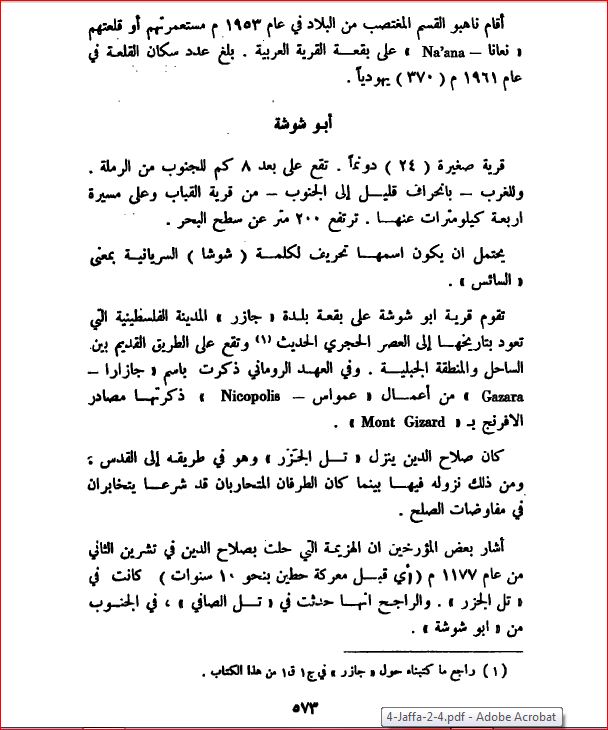 أقام ناهبو القسم المغتصب من البلاد في عام ١٩٥٣ م مستعمرتهم أو قلعتهم
« نعانا – Na'ana » على بقعة القرية العربية . بلغ عدد سكان القلعة في
عام ١٩٦١ م ( ٣٧٠ ) يهودياً .
أبو شوشة
قرية صغيرة ( ٢٤ ) دونماً . تقع على بعد ٨ كم للجنوب من الرملة .
وللغرب – بانحراف قليل إلى الجنوب – من قرية القباب وعلى مسيرة
اربعة كيلومترات عنها . ترتفع ٢٠٠ متر عن سطح البحر .
يحتمل ان يكون اسمها تحريف لكلمة ( شوشا ) السريانية بمعنى
« السائس » .
تقوم قرية ابو شوشة على بقعة بلدة « جازر » المدينة الفلسطينية التي
تعود بتاريخها إلى العصر الحجري الحديث (١) وتقع على الطريق القديم بين
الساحل والمنطقة الجبلية . وفي العهد الروماني ذكرت باسم « جازارا –
Gazara » من أعمال « عمواس – Nicopolis » ذكرتها مصادر
الافرنج بـ « Mont Gizard » .
كان صلاح الدين ينزل « تل الجَزَر » وهو في طريقه إلى القدس ،
ومن ذلك نزوله فيها بينما كان الطرفان المتحاربان قد شرعا يتخابران
في مفاوضات الصلح .
أشار بعض المؤرخين ان الهزيمة التي حلت بصلاح الدين في تشرين الثاني
من عام ١١٧٧ م ( أي قبل معركة حطين بنحو ١٠ سنوات ) كانت في
« تل الجزر » . والراجح انها حدثت في « تل الصافي » ، في الجنوب
من « ابو شوشة » .
( ١ ) راجع ما كتبناه حول « جازر » في ج١ ق١ من هذا الكتاب .
٥٧٣
4-Jaffa-2-4.pdf - Adobe Acrobat